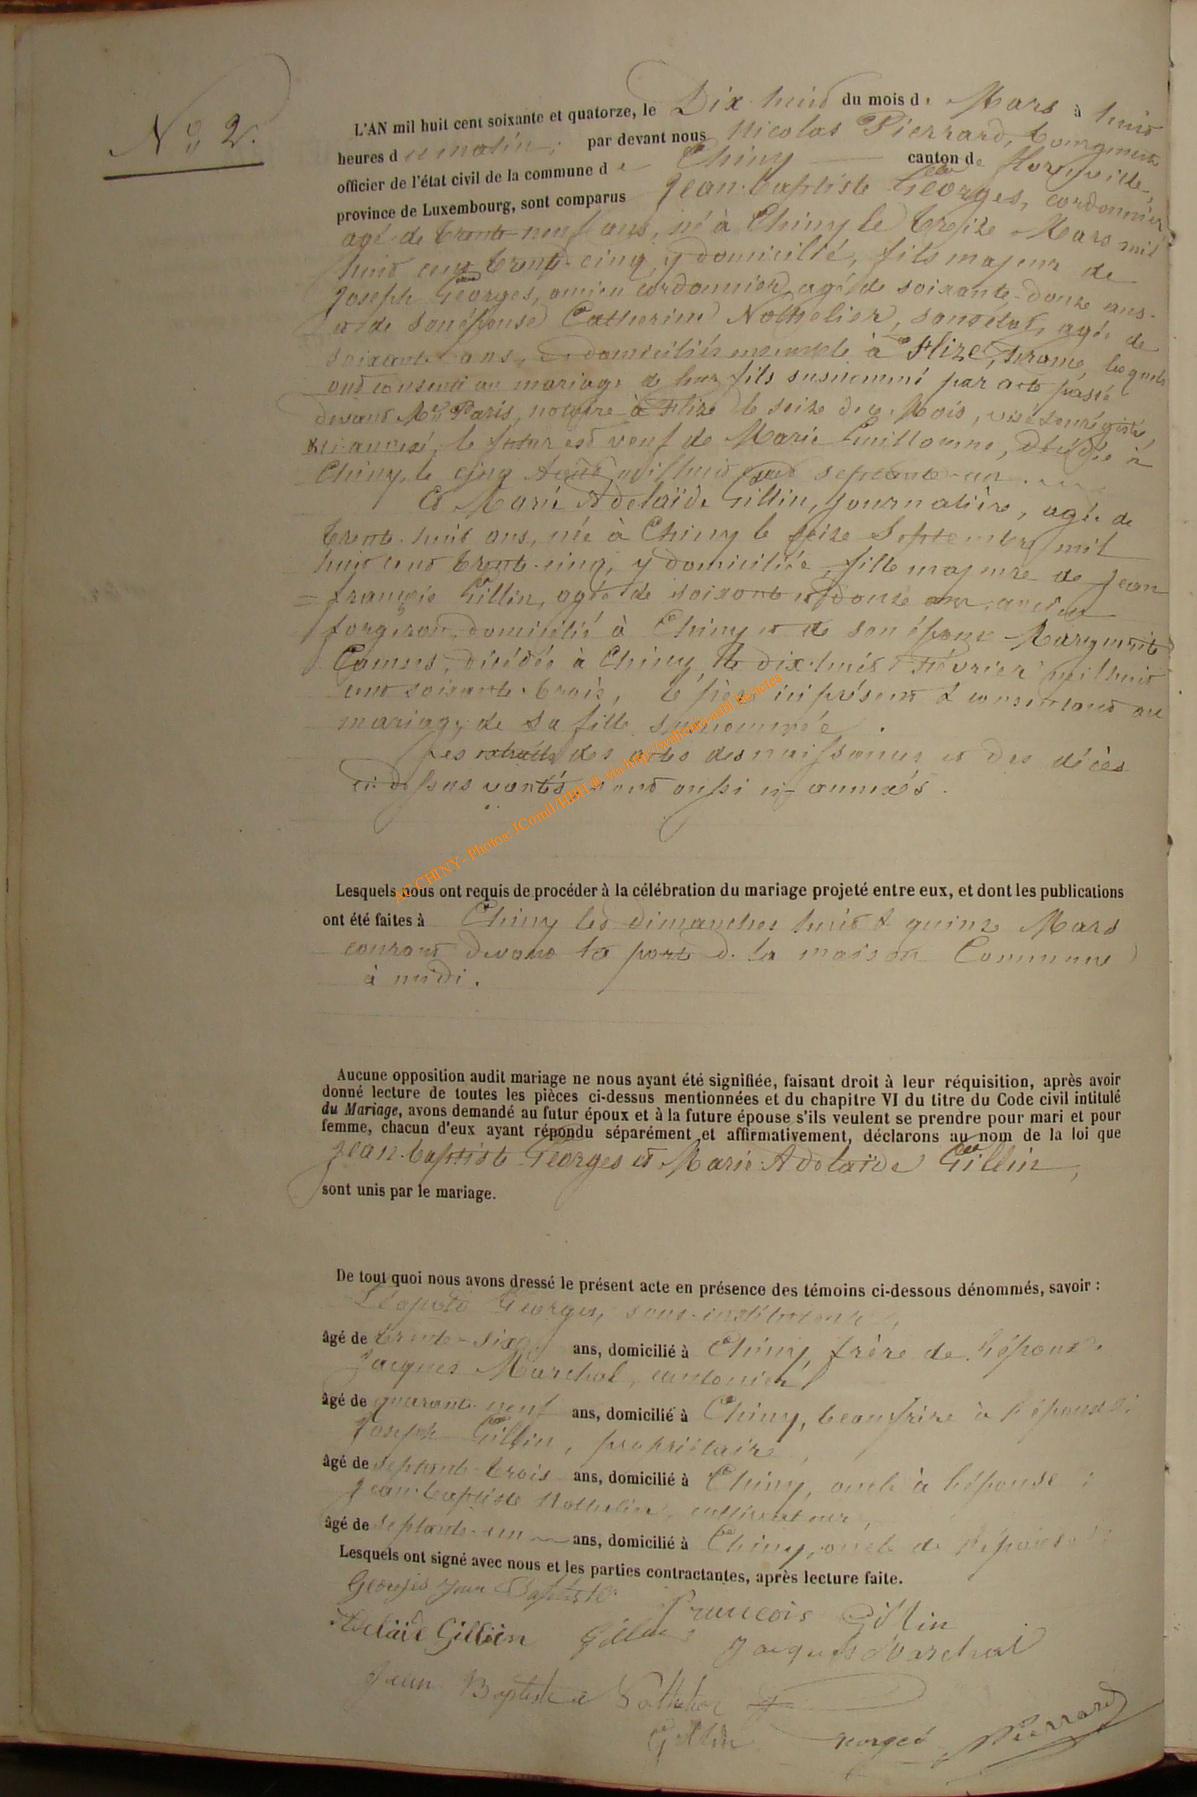 N° 2.
L'AN mil huit cent soixante et quatorze, le Dix-huit du mois de Mars à huit
heures du matin, par devant nous Nicolas Pierrard, bourgmestre
officier de l'état civil de la commune de Chiny canton de Florenville,
province de Luxembourg, sont comparus Jean-baptiste Georges, cordonnier
agé de trente-neuf ans, né à Chiny le treize Mars mil
huit cent trente-cinq, y domicilié, fils majeur de
Joseph Georges, ancien cordonnier, agé de soixante-douze ans
et de son épouse Catherine Nothelier, sans état, agée de
soixante ans, domiciliés ensemble à Flize, lesquels
ont consenti au mariage de leur fils susnommé par acte passé
devant Me Paris, notaire à Flize le seize de ce Mois, visé & enrégistré
& ci-annexé, le futur est veuf de Marie Guillaume, décédée à
Chiny, le cinq Août mil huit cent septante-un.
Et Marie Adelaïde Gillin, journalière, agée de
trente-huit ans, née à Chiny le seize Septembre mil
huit cent trente-cinq, y domiciliée, fille majeure de Jean
françois Gillin, agé de soixante et douze ans, ancien
forgeron, domicilié à Chiny et de son épouse Marguerite
décédée à Chiny, le dix-huit Février mil huit
cent soixante-trois, le père ici présent & consentant au
mariage de sa fille susnommée.
Les extraits des actes des naissances et des décès
ci-dessus vantés sont aussi ci-annexés.
AC CHINY - Photos: JComil
Lesquels nous ont requis de procéder à la célébration du mariage projeté entre eux, et dont les publications
ont été faites à Chiny les dimanches huit & quinze Mars
courant devant la porte de la maison Commune
à midi.
Aucune opposition audit mariage ne nous ayant été signifiée, faisant droit à leur réquisition, après avoir
donné lecture de toutes les pièces ci-dessus mentionnées et du chapitre VI du titre du Code civil intitulé
du Mariage, avons demandé au futur époux et à la future épouse s'ils veulent se prendre pour mari et pour
femme, chacun d'eux ayant répondu séparément et affirmativement, déclarons au nom de la loi que
Jean-baptiste Georges et Marie Adelaïde Gillin,
sont unis par le mariage.
De tout quoi nous avons dressé le présent acte en présence des témoins ci-dessous dénommés, savoir :
Léopold Georges, sous-instituteur,
âgé de trente-six ans, domicilié à Chiny, frère de l'époux
Jacques Marchal, cantonier
âgé de quarante-neuf ans, domicilié à Chiny, beaufrère à l'épouse
Joseph Gillin, propriétaire,
âgé de septante-trois ans, domicilié à Chiny, oncle à l'épouse ;
Jean-baptiste Nothelier, cultivateur,
âgé de septante-un ans, domicilié à Chiny, oncle de
Lesquels ont signé avec nous et les parties contractantes, après lecture faite.
Georges Jean Baptiste
francois Gillin
Adelaïde Gilliin Gillin Jacques Marchal
Jean Baptiste Nothelier
Gillin Georges Pierrard